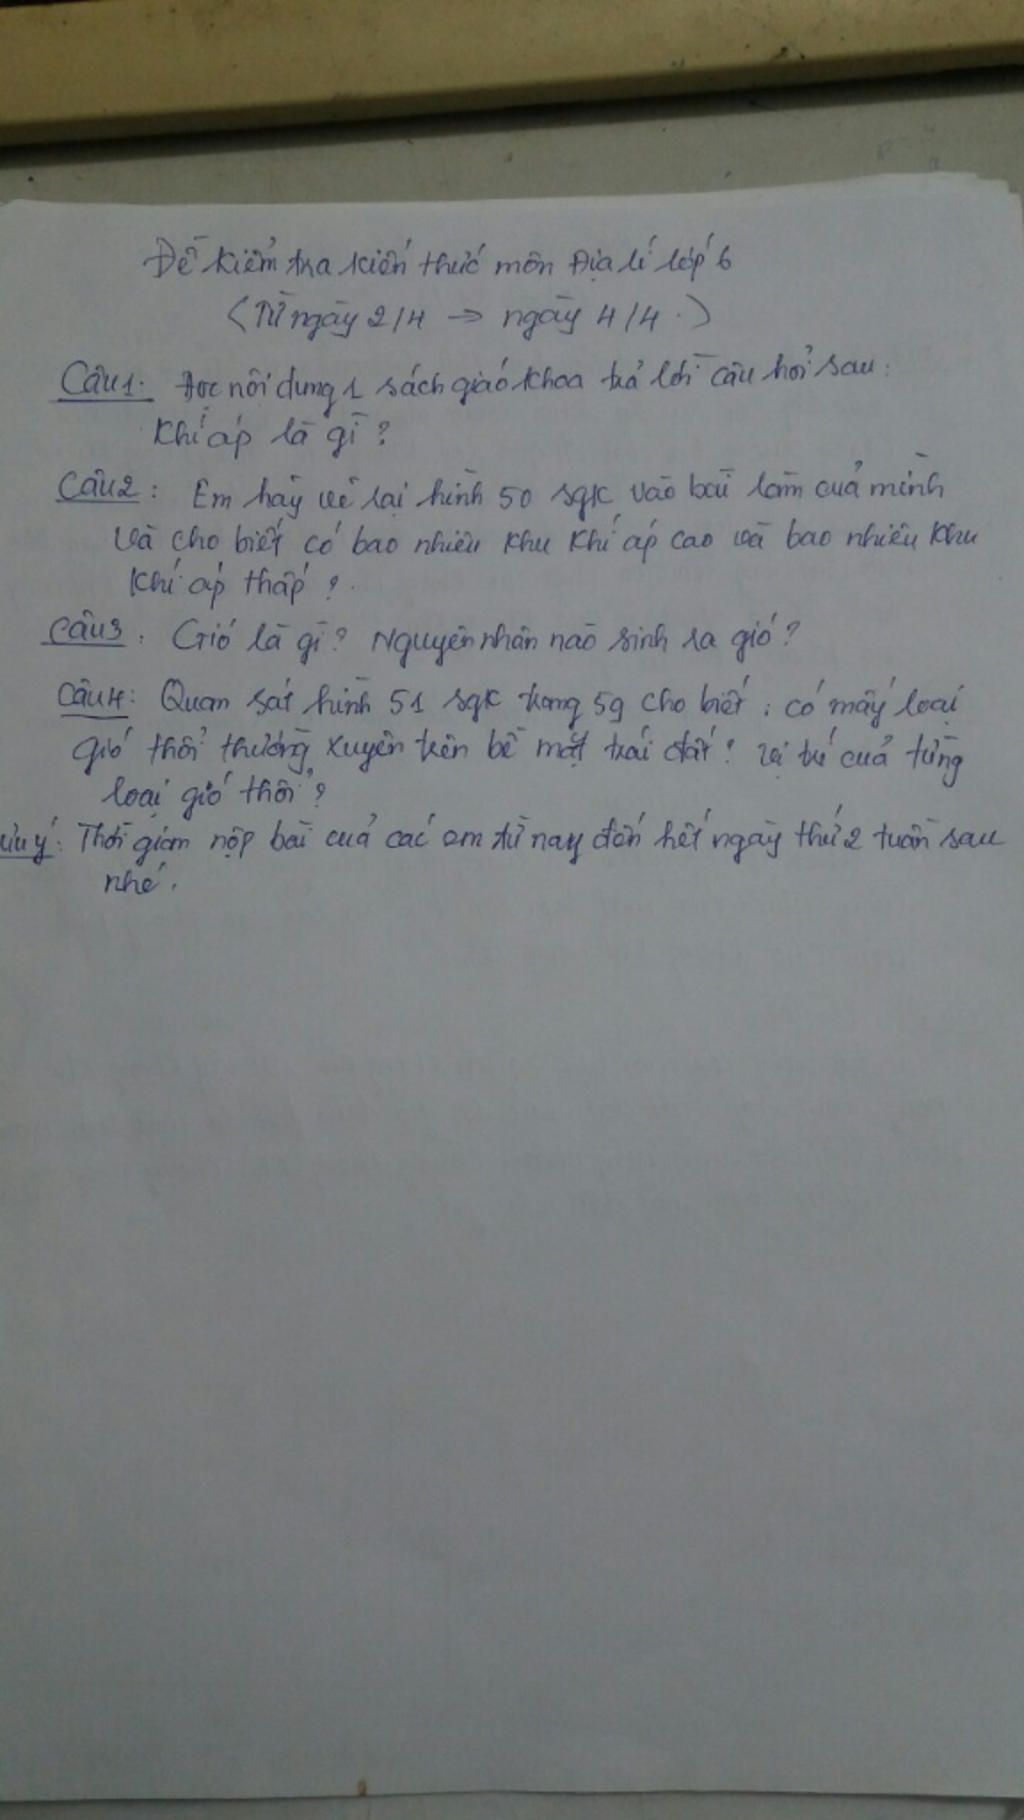 Đề kiểm tra kiến thức môn Địa lí lớp 6
(Từ ngày 2/4 → ngày 4/4.)
Câu 1: Đọc nội dung 1 sách giáo khoa trả lời câu hỏi sau:
Khí áp là gì?
Câu 2: Em hãy vẽ lại hình 50 sgk vào bài làm của mình
và cho biết có bao nhiêu khu khí áp cao và bao nhiêu khu
khí áp thấp?
Câu 3: Gió là gì? Nguyên nhân nào sinh ra gió?
Câu 4: Quan sát hình 51 sgk trang 59 cho biết: có mấy loại
gió thổi thường xuyên trên bề mặt trái đất? Vị trí của từng
loại gió thổi?
ưu ý: Thời gian nộp bài của các em từ nay đến hết ngày thứ 2 tuần sau
nhé.